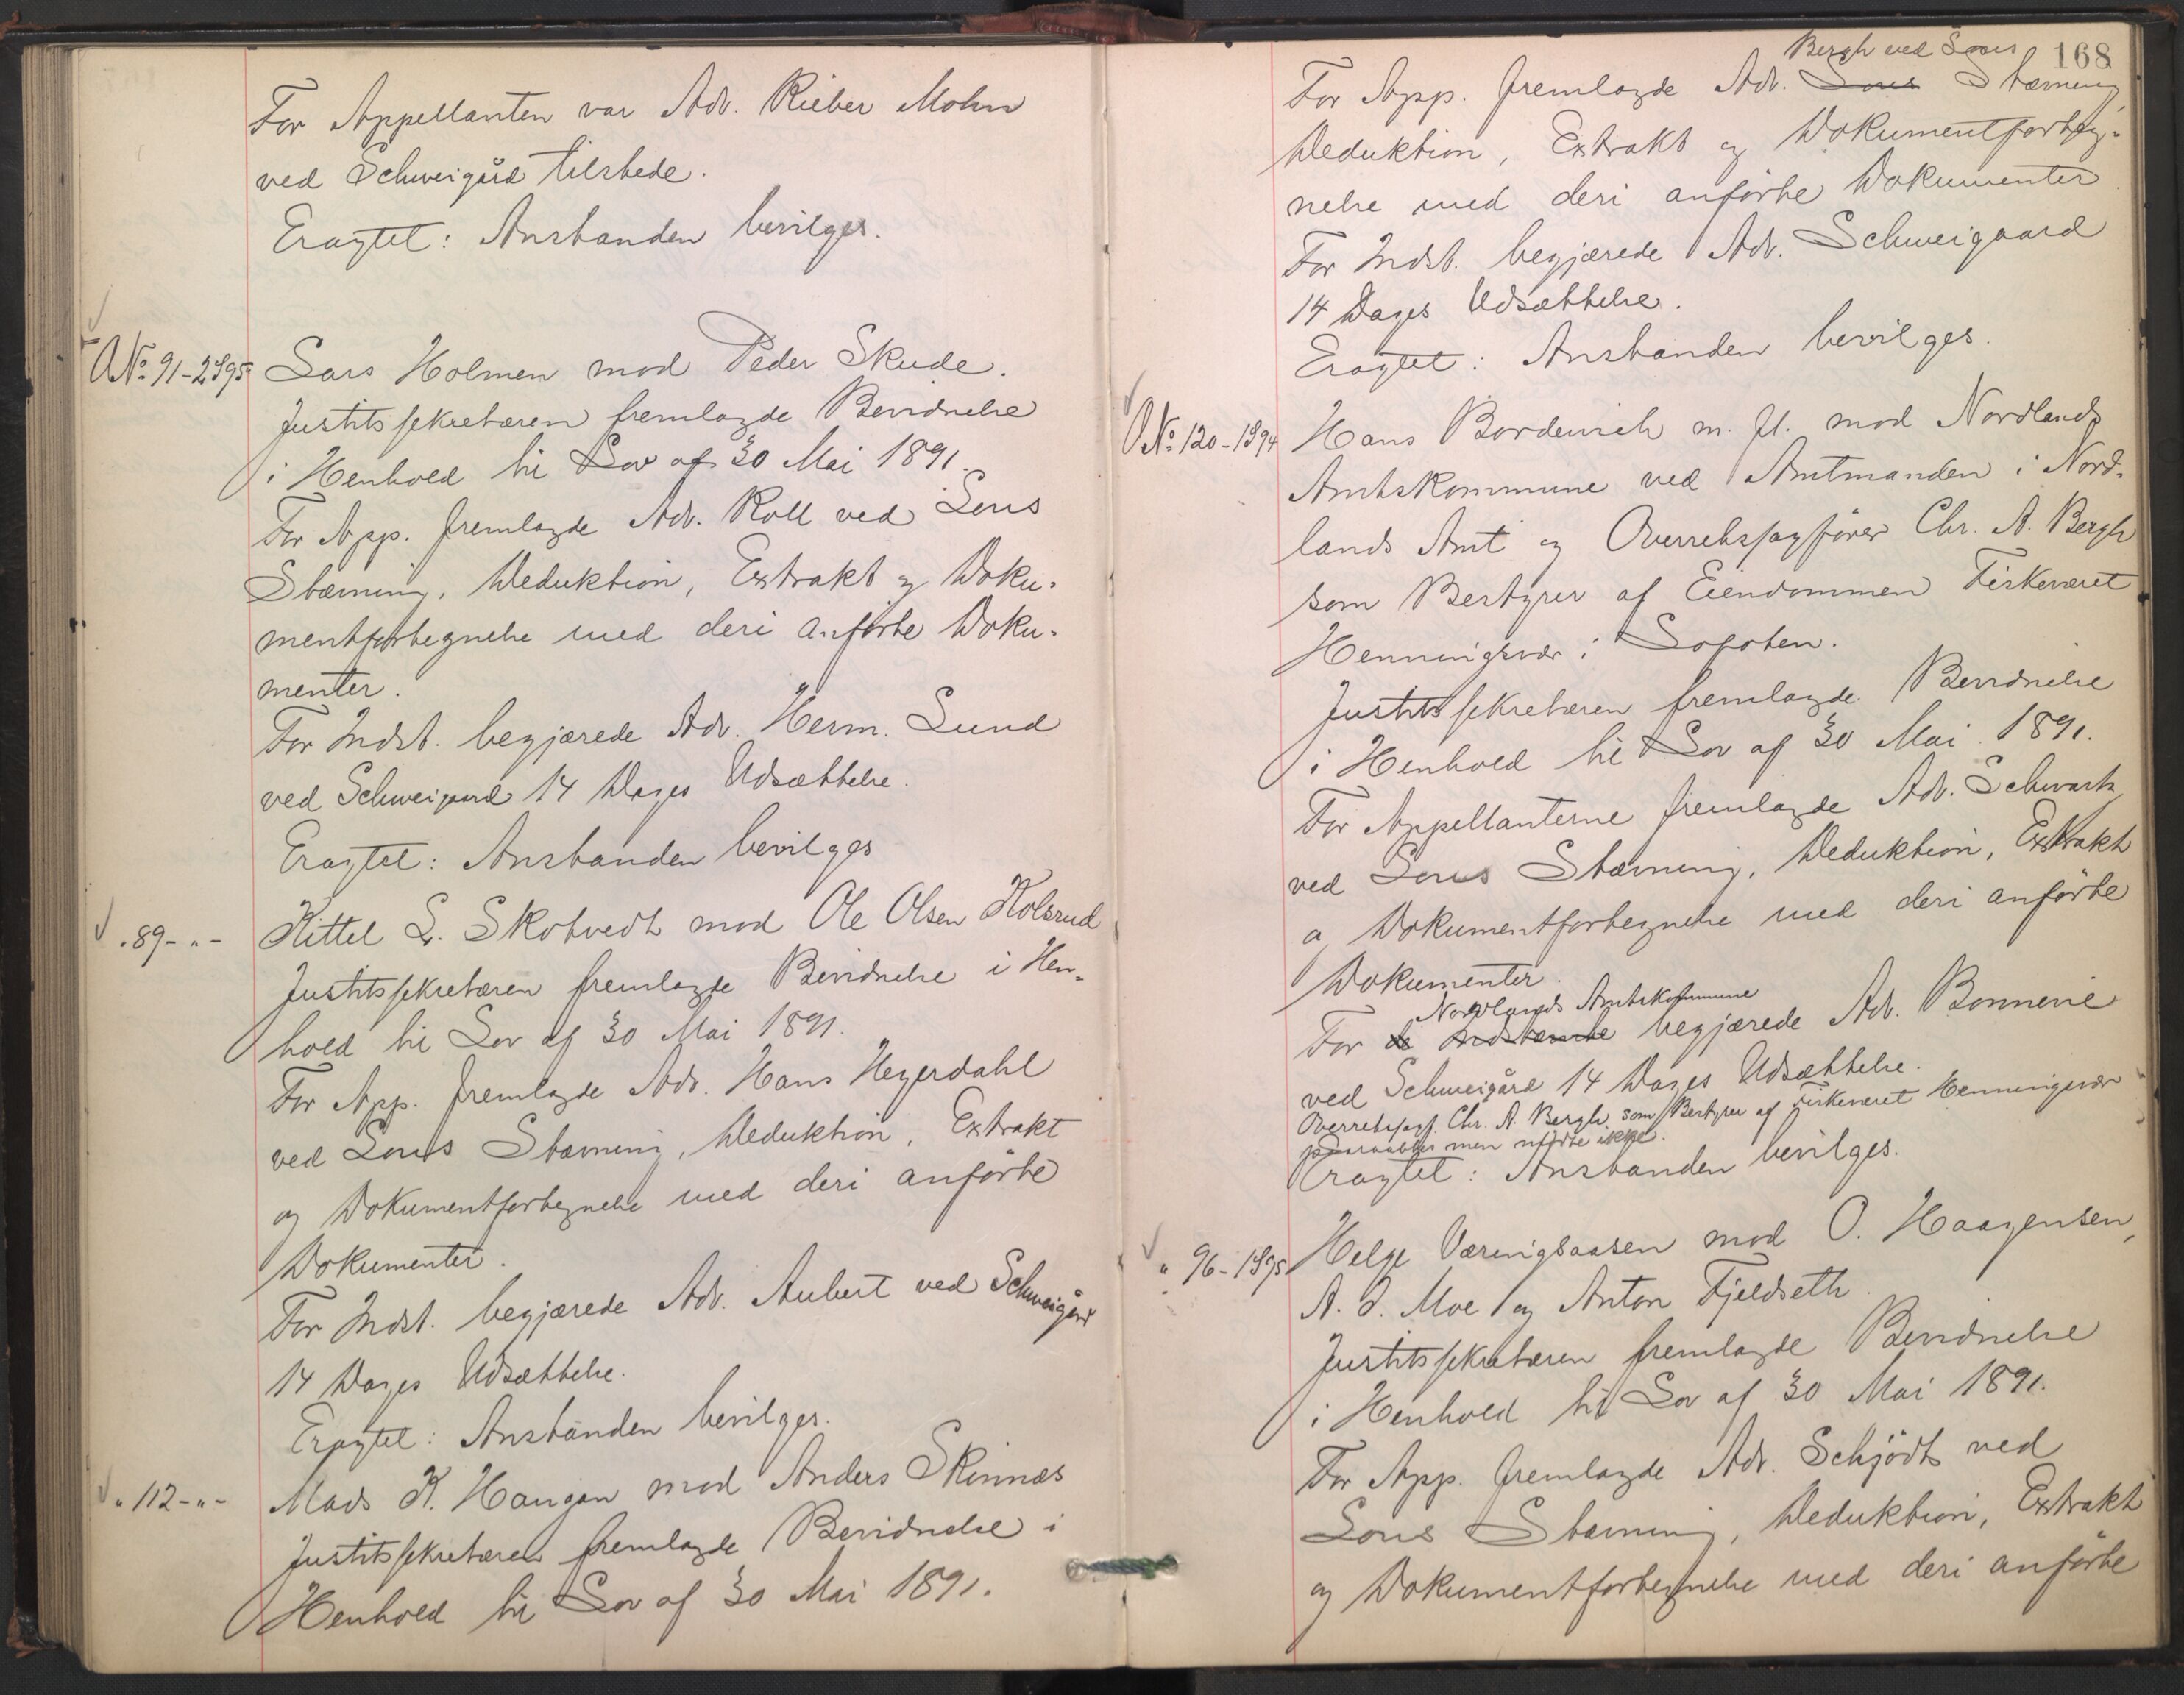 For Appellanten var Adv. Rieber Mohn
ved Schweigård tilstede.
Eragtet: Anstanden bevilges.
O№ 91-2 895 Lars Holmen mod Peder Skude.
Justitssekretæren fremlagde Bevidnelse
i Henhold til Lov af 30 Mai 1891.
For App. fremlagde Adv. Roll ved Lous
Stævning, Deduktion, Extrakt og Doku-
mentfortegnelse med deri anførte Doku-
menter.
For Indst. begjærede Adv. Herm. Lund
ved Schweigaard 14 Dages Udsættelse.
Eragtet: Anstanden bevilges
" 89-"- Kittel L. Skotvedt mod Ole Olsen Kolsrud
Justitssekretæren fremlagde Bevidnelse i Hen-
hold til Lov af 30 Mai 1891.
For App. fremlagde Adv. Hans Heyerdahl
ved Lous Stævning, Deduktion, Extrakt
og Dokumentfortegnelse med deri anførte
Dokumenter.
For Indst. begjærede Adv. Aubert ved Schweigård
14 Dages Udsættelse.
Eragtet: Anstanden bevilges.
" 112-"- Mads K. Haugan mod Anders Skinnes
Justitssekretæren fremlagde Bevidnelse i
Henhold til Lov af 30 Mai 1891.
168
Bergh ved Lous
For App. fremlagde Adv. Lous Stævning,
Deduktion, Extrakt og Dokumentforteg-
nelse med deri anførte Dokumenter
For Indst. begjærede Adv. Schweigaard
14 Dages Udsættelse.
Eragtet: Anstanden bevilges.
O№ 120-1894 Hans Bordewich m. fl. mod Nordlands
Amtskommune ved Amtmanden i Nord-
lands Amt og Overretssagfører Chr. A. Bergh
som Bestyrer af Eiendommen Fiskeværet
Henningsvær i Lofoten.
Justitssekretæren fremlagde Bevidnelse
i Henhold til Lov af 30 Mai 1891.
For Appellanterne fremlagde Adv. Schwartz
ved Lous Stævning, Deduktion, Extrakt
og Dokumentfortegnelse med deri anførte
Dokumenter.
Nordlands Amtskommune
For de Indstævnte begjærede Adv. Bonnevie
ved Schweigård 14 Dages Udsættelse.
Overretssagf. Chr. A. Bergh som Bestyrer af Fiskeværet Henningsvær
paaraabtes men mødte ikke.
Eragtet: Anstanden bevilges.
" 96-1895 Helge Væringsaasen mod O. Haagensen,
A. O. Moe og Anton Fjeldseth.
Justitssekretæren fremlagde Bevidnelse
i Henhold til Lov af 30 Mai 1891.
For App. fremlagde Adv. Schjödt ved
Lous Stævning, Deduktion, Extrakt
og Dokumentfortegnelse med deri anførte